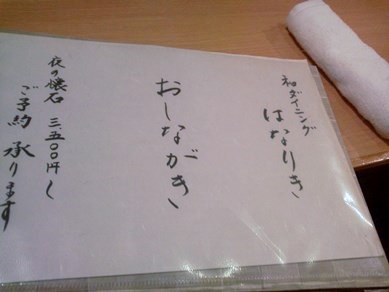 和ダイニング
はなりき
おしながき
夜の懐石 三、五〇〇円〜
ご予約承ります